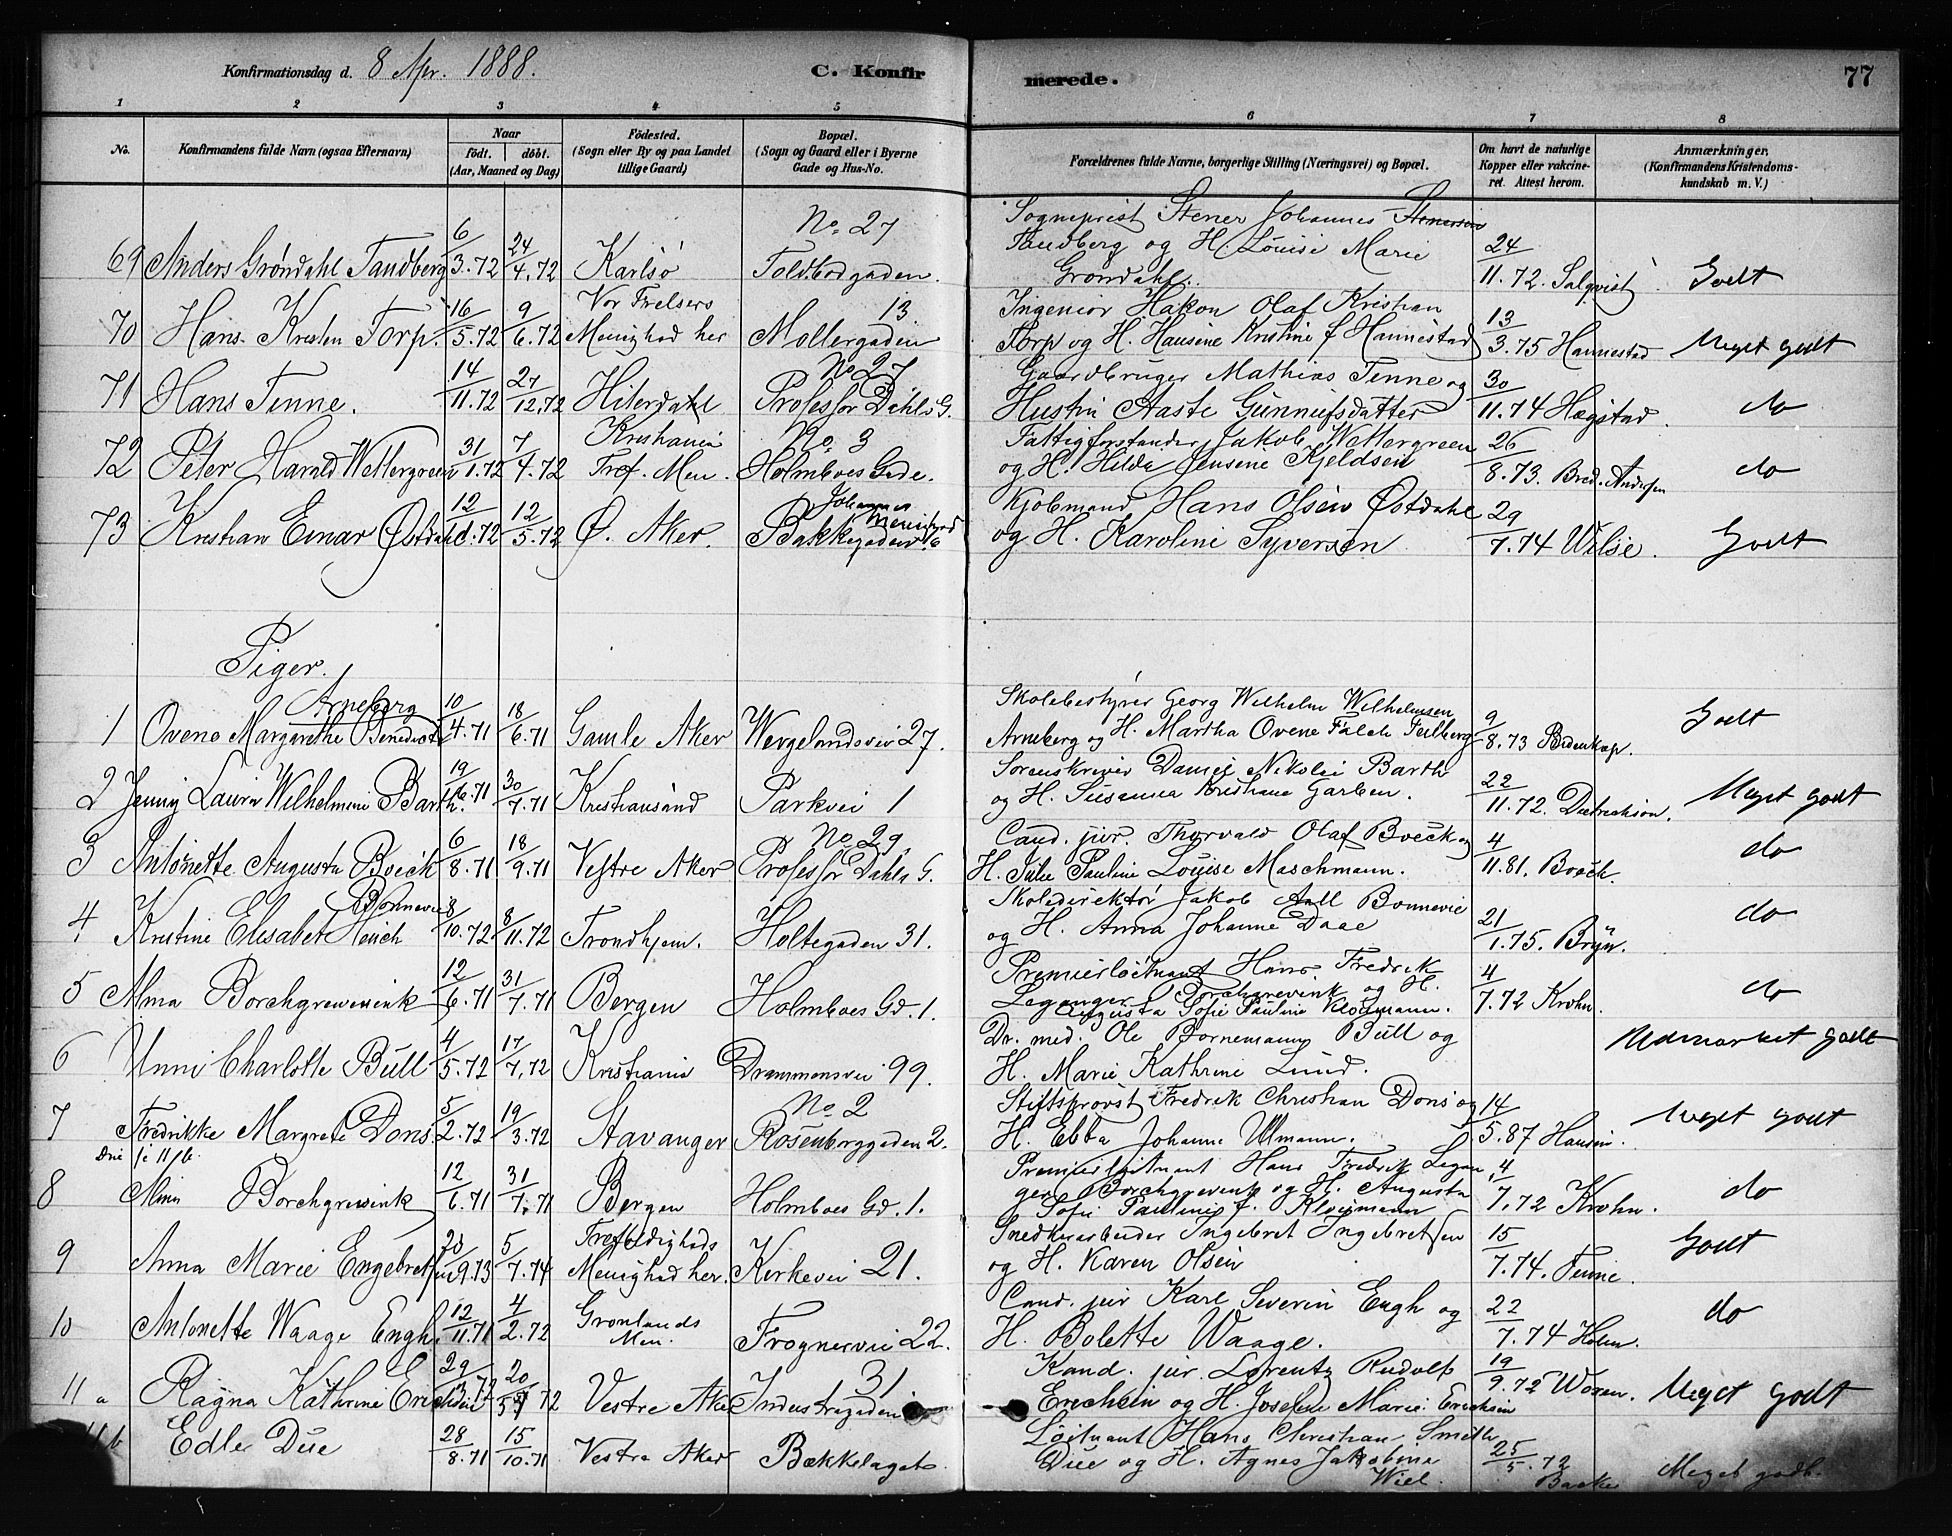 Konfirmationsdag d. 8 Apr. 1888. C. Konfirmerede. 77
1 2 3 4 5 6 7 8
No. Konfirmandens fulde Navn (ogsaa Efternavn) Naar født. døbt. (Aar, Maaned og Dag) Fødested. (Sogn eller By og paa Landet tillige Gaard) Bopæl. (Sogn og Gaard eller i Byerne Gade og Hus-No.) Forældrenes fulde Navne, borgerlige Stilling (Næringsvei) og Bopæl. Om havt de naturlige Kopper eller vakcineret. Attest herom. Anmærkninger, (Konfirmandens Kristendomskundskab m. V.)
69 Anders Grøndahl Tandberg 6/3.72 24/4.72 Karlsö No. 27 Toldbodgaden. Sogneprest Stener Johannes Stenersen Tandberg og H. Louise Marie Grøndahl. 24/11.72. Salqvist Godt
70 Hans Kristen Torp. 16/5.72 9/6.72 Vor Frelsers Menighed her 13 Møllergaden Ingeniör Håkon Olaf Kristian Torp og H. Hansine Kristine f Hannestad 13/3.75 Hannestad Meget godt
71 Hans Tinne. 14/11.72 27/12.72 Hiterdahl No 27 Professor Dahls G. Gaardbruger Mathias Tinne og Hustru Aaste Gunnufsdatter 30/11.74 Hægstad. do
72 Peter Harald Wettergreen 31/1.72 7/4.72 Kristiania Tref. Men. No. 3 Holmboes Gade. Fattigforstander Jakob Wettergreen og H. Hilda Jensine Kjeldsen 26/8.73. Bred. Andersen do
73 Kristian Einar Østdahl 12/1.72 12/5.72 Ø. Aker. Johannes Menighed Bakkegaden 6 Kjøbmand Hans Olsen Østdahl og H. Karoline Syversen 29/7.74 Wilse. Godt
Piger.
1 Ovene Margarethe Benedicte Arneberg 10/4.71 18/6.71 Gamle Aker Wergelandsvei 27. Skolebestyrer Georg Wilhelm Wilhelmsen Arneberg og H. Martha Ovene Falch Feilberg 9/8.73 Bidenkap. Godt
2 Jenny Laura Wilhelmine Barth. 19/6.71 30/7.71 Kristiansand Parkvei 1 Sorenskriver Daniel Nikolai Barth og H. Susanna Kristiane Garben. 22/11.72. Diedrichson. Meget godt
3 Antoinette Augusta Boeck 6/8.71 18/9.71 Vestre Aker No 29. Professor Dahls G. Cand. jur. Thorvald Olaf Boeck og H. Julie Pauline Louise Maschmann. 4/11.81. Boeck. do
4 Kristine Elisabet Heuch Bonnevie 8/10.72 8/11.72 Trondhjem. Holtegaden 31. Skoledirektör Jakob Aall Bonnevie og H. Anna Johanne Daae 21/1.75. Bryn. do
5 Alma Borchgrewenink 12/6.71 31/7.71 Bergen Holmboes Gd. 1. Premierlöitnant Hans Fredrik Leganger Borchgrevink og H. Augusta Sofie Pauline Kloumann. 4/7.72 Krohn. do
6 Unni Charlotte Bull 4/5.72 17/7.72 Kristiania Drammensvei 99. Dr. med. Ole Bornemann Bull og H. Marie Kathrine Lund. Udmærket godt
7 Fredrikke Margrete Dons 5/2.72 19/3.72 Stavanger No 2 Rosenborggaden 2. Stiftsprovst Fredrik Christian Dons og H. Ebba Johanne Ullmann. 14/5.87 Hansen. Meget godt
Due se 11 b.
8 Mina Borchgrevink 12/6.71 31/7.71 Bergen Holmboes Gd. 1. Premierlöitnant Hans Fredrik Leganger Borchgrevink og H. Augusta Sofie Pauline f. Kloumann 4/7.72 Krohn. do
9 Anna Marie Engebretsen 23/9.73 5/7.74 Trefoldigheds Menighed her. Kirkevei 21. Snedkerarbeider Ingebret Ingebretsen og H. Karen Olsen 15/7.74. Godt
10 Antonette Waage Engh 12/11.71 4/2.72 Grønlands Men. Frognervei 22. Cand. jur Karl Severin Engh og H. Bolette Waage. 22/7.74 Holm. do
11 a Ragna Kathrine Erichsen 29/3.72 20/5 72 Vestre Aker 31 Industrigaden Kand. jur. Lorentz Rudolf Erichsen og H. Josefine Marie Erichsen 19/9.72 Woxen. Meget godt
11 b Edle Due 28/8.71 15/10.71 Vestre Aker Bækkelaget. Löitnant Hans Christian Smith Due og H. Agnes Jakobine Wiel. 25/5.72 Backe Meget godt.